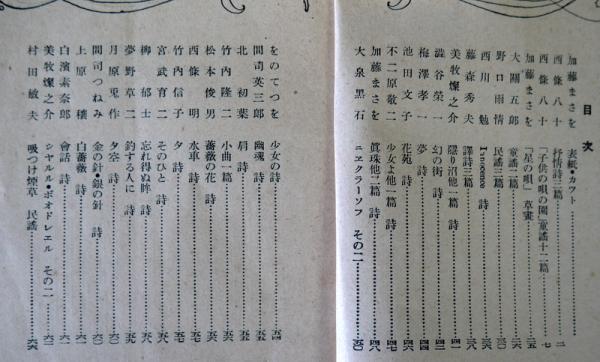 目次
加藤まさを 表紙・カット
西條八十 抒情詩二篇 二
西條八十 「子供の唄の園」童謡十二篇 七
加藤まさを 「星の唄」草畫
大關五郎 童謡二篇
野口雨情 民謡三篇
西川勉 Innocence 詩
藤森秀夫 譯詩三篇
美牧燦之介 隱り沼他二篇 詩
澁谷榮一 幻の街 詩
梅澤孝一 夢 詩
池田文子 花苑 詩
不二原敬二 少女よ他一篇 詩
加藤まさを 眞珠他二篇 詩 四八
大泉黒石 ニヱクラーソフ その二 五〇
をのてつを 少女の詩 五四
間司英三郎 幽魂 詩 五五
北初葉 肩 詩 五五
竹内隆二 小曲二篇 五六
松本俊男 薔薇の花 詩 五六
西條明 水車 詩 五七
竹内信子 夕 詩 五七
宮武育二 そのひと 詩
柳郁士 忘れ得ぬ眸 詩
夢野草二 釣する人に 詩
月原兎作 夕空 詩
間司つねみ 金の針・銀の針 詩
上原穰 白薔薇 詩
白濱素奈郎 會話 詩
美牧燦之介 シヤルル・ボオドレエル その二
村田敏夫 吸つけ煙草 民謡